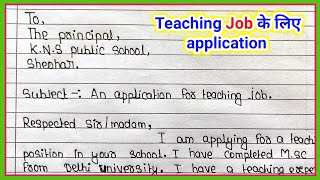 Teaching Job के लिए
application
To,
The principal,
K.N.S public school,
Sheohar.
Subject :- An application for teaching job.
Respected Sir/madam,
I am applying for a teach
position in your school. I have completed M.SC
From Delhi university. I have a teaching exper